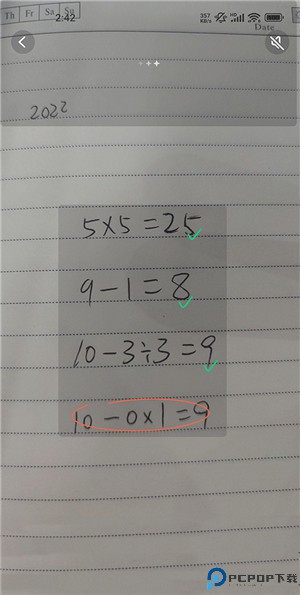 Th Fr Sa Su
2:42
357 KB/s
HD
Date
2022
5×5=25
9-1=8
10-3÷3=9
10-0×1=9
PCPOP下载